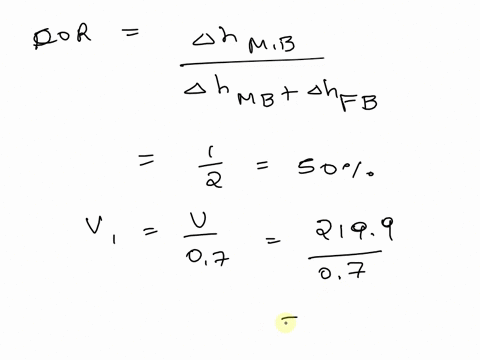 DOR = Δh M.B / Δh MB + Δh FB
= 1/2 = 50%
V1 = U/0.7 = 219.9/0.7
=